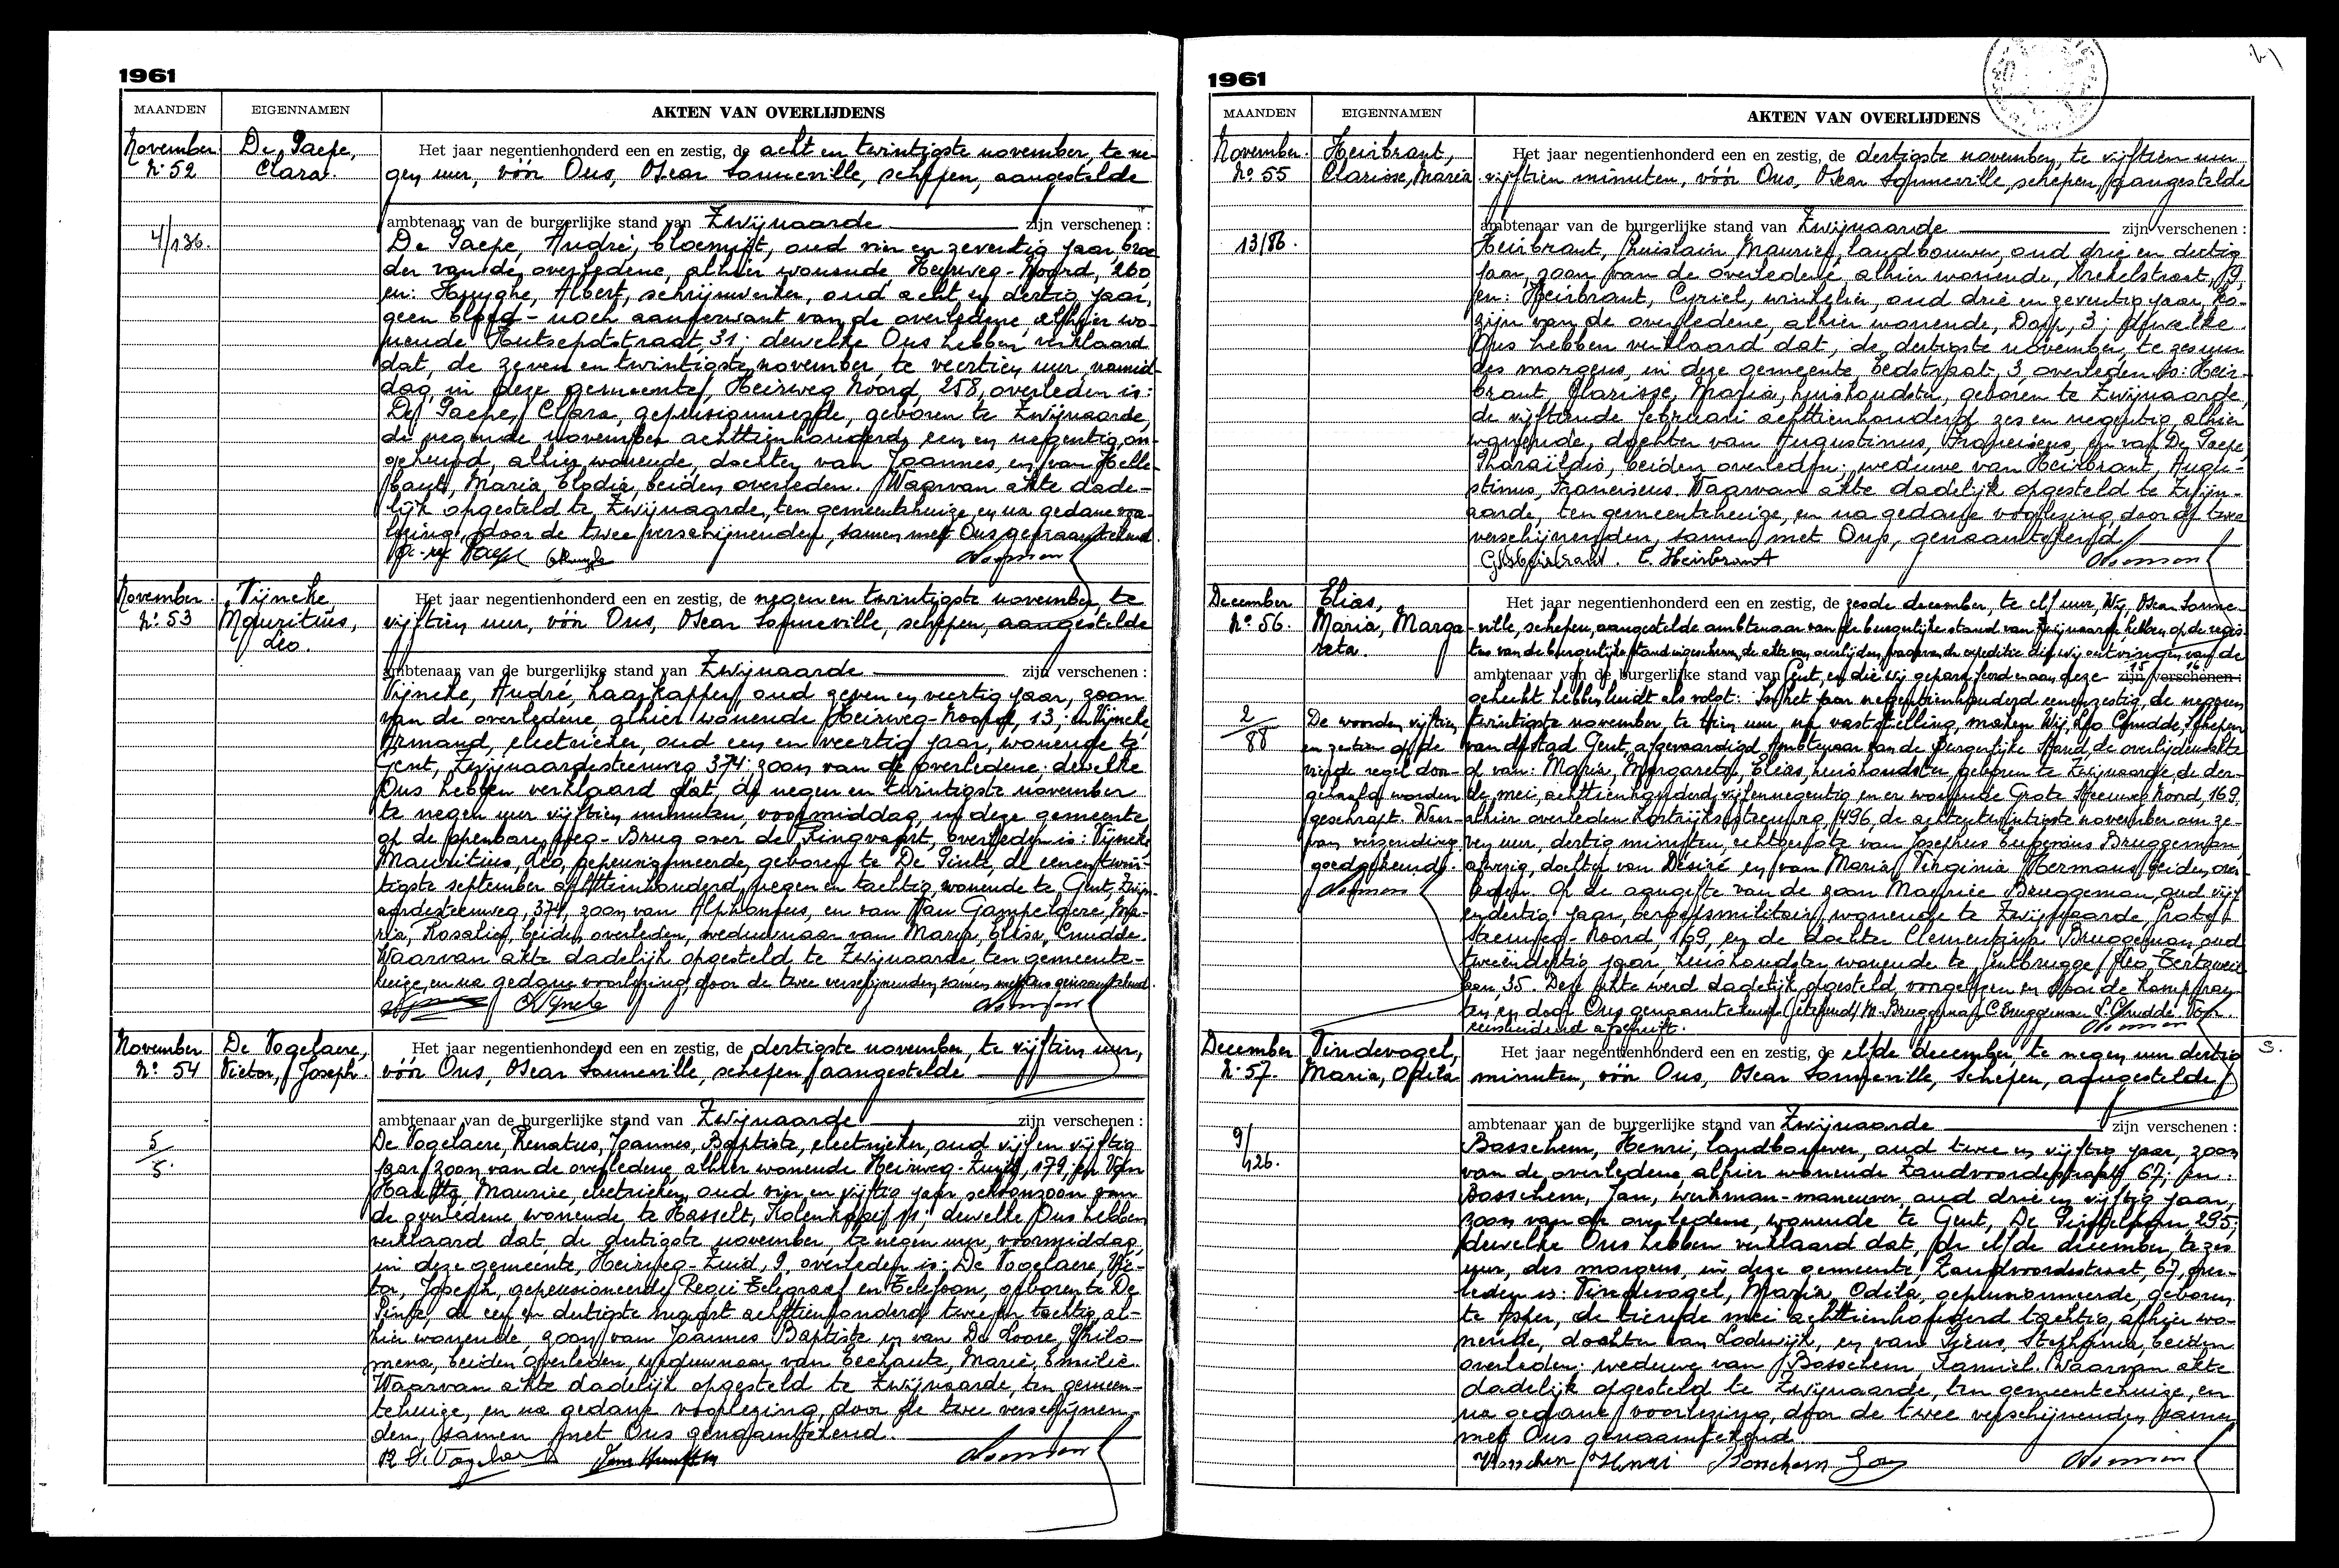 1961
MAANDEN EIGENNAMEN AKTEN VAN OVERLIJDENS
November N: 52
De Paepe, Clara.
4/136.
Het jaar negentienhonderd een en zestig, de acht en twintigste november, te ne-
gen uur, vóór Ons, Oscar Sonneville, schepen, aangestelde
ambtenaar van de burgerlijke stand van Zwijnaarde zijn verschenen :
De Paepe, André, bloemist, oud vier en zeventig jaar, broe-
der van de overledene, alhier wonende Heirweg-Noord, 260,
en: Huyghe, Albert, schrijnwerker, oud acht en dertig jaar,
geen bloed - noch aanverwant van de overledene, alhier wo-
nende Houtsendstraat, 31; dewelke Ons hebben verklaard
dat, de zeven en twintigste november, te veertien uur namid-
dag, in deze gemeente, Heirweg Noord, 258, overleden is:
De Paepe, Clara, gepensionneerde, geboren te Zwijnaarde,
de negende november achttienhonderd een en negentig, on-
gehuwd, alhier wonende, dochter van Joannes, en van Helle-
baut, Maria Elodia, beiden overleden. Waarvan akte dade-
lijk opgesteld te Zwijnaarde, ten gemeentehuize, en na gedane voor-
lezing, door de twee verschijnenden, samen met Ons genaamtekend.
November N: 53
Vijncke, Mauritius, Leo.
Het jaar negentienhonderd een en zestig, de negen en twintigste november, te
vijftien uur, vóór Ons, Oscar Sonneville, schepen, aangestelde
ambtenaar van de burgerlijke stand van Zwijnaarde zijn verschenen :
Vijncke, André, haarkapper, oud zeven en veertig jaar, zoon
van de overledene, alhier wonende Heirweg-Noord, 13; en Vijncke,
Armand, electrieker, oud een en veertig jaar, wonende te
Gent, Zwijnaardesteenweg 374; zoon van de overledene; dewelke
Ons hebben verklaard dat, de negen en twintigste november
te negen uur vijftien minuten, voormiddag, in deze gemeente
op de openbare weg - Brug over de Ringvaart, overleden is: Vijncke
Mauritius, Leo, gepensioneerde, geboren te De Pinte, de een en twin-
tigste september achttienhonderd negen en tachtig, wonende te Gent, Zwijn-
aardesteenweg, 374, zoon van Alphonsus, en van Van Gampelaere, Ma-
ria, Rosalia, beiden overleden, weduwnaar van Maria, Elisa, Cnudde.
Waarvan akte dadelijk opgesteld te Zwijnaarde, ten gemeente-
huize, en na gedane voorlezing, door de twee verschijnenden, samen met Ons genaamtekend.
November N: 54
De Vogelaere, Victor, Joseph.
5/5.
Het jaar negentienhonderd een en zestig, de dertigste november, te vijftien uur,
vóór Ons, Oscar Sonneville, schepen, aangestelde
ambtenaar van de burgerlijke stand van Zwijnaarde zijn verschenen :
De Vogelaere, Renatus, Joannes, Baptista, electrieker, oud vijf en vijftig
jaar, zoon van de overledene, alhier wonende Heirweg-Zuid, 179; en Van
Maurice, electrieker, oud vier en vijftig jaar, schoonzoon van
de overledene, wonende te Hasselt, dewelke Ons hebben
verklaard dat, de dertigste november, te negen uur, voormiddag,
in deze gemeente, Heirweg-Zuid, 9, overleden is: De Vogelaere, Vic-
tor, Joseph, gepensioneerde Regie Telegraaf en Telefoon, geboren te De
Pinte, de een en dertigste maart achttienhonderd twee en tachtig, al-
hier wonende, zoon van Joannes Baptiste, en van De Loore, Philo-
mena, beiden overleden, weduwnaar van Eeckaute, Marie, Emilie.
Waarvan akte dadelijk opgesteld te Zwijnaarde, ten gemeen-
tehuize, en na gedane voorlezing, door de twee verschijnen-
den, samen met Ons genaamtekend.
1961
MAANDEN EIGENNAMEN AKTEN VAN OVERLIJDENS
November. No: 55
Heirbrant, Clarisse, Maria
13/86.
Het jaar negentienhonderd een en zestig, de dertigste november, te vijftien uur
vijftien minuten, vóór Ons, Oscar Sonneville, schepen, aangestelde
ambtenaar van de burgerlijke stand van Zwijnaarde zijn verschenen :
Heirbrant, Ghislain, Maurice, landbouwer, oud drie en dertig
jaar, zoon van de overledene, alhier wonende, Krekelstraat, 19,
en: Heirbrant, Cyriel, winkelier, oud drie en zeventig jaar, ko-
zijn van de overledene, alhier wonende, Dorp, 3; dewelke
Ons hebben verklaard dat, de dertigste november, te zes uur
des morgens, in deze gemeente, 3, overleden is: Heir-
brant, Clarisse, Maria, huishoudster, geboren te Zwijnaarde,
de vijftiende februari achttienhonderd zes en negentig, alhier
wonende, dochter van Augustinus, Franciscus, en van De Paepe,
Pharaïldis, beiden overleden; weduwe van Heirbrant, Augu-
stinus, Franciscus. Waarvan akte dadelijk opgesteld te Zwijn-
aarde, ten gemeentehuize, en na gedane voorlezing, door de twee
verschijnenden, samen met Ons, genaamtekend
C. Heirbrant
December No: 56.
Elias, Maria, Marga-reta.
2/88
De woorden vijftien
en zestien op de
vierde regel door-
gehaald worden
geschrapt. Deze
van verzending
goedgekeurd.
Het jaar negentienhonderd een en zestig, de zesde december, te elf uur, Wij, Oscar Sonne-
ville, schepen, aangestelde ambtenaar van de burgerlijke stand van Zwijnaarde hebben op de regis-
ters van de burgerlijke stand ingeschreven, de akte van overlijden, waarvan de expeditie die wij ontvingen van de
ambtenaar van de burgerlijke stand van Gent, en die wij geparafeerd en aan deze zijn verschenen :
gehecht hebben luidt als volgt: In het jaar negentienhonderd eenenzestig, de negen en
twintigste november, te tien uur, na vaststelling, maken Wij, Leo Cnudde, Schepen
van de stad Gent, afgevaardigd Ambtenaar van de Burgerlijke Stand, de overlijdensakte
op van: Maria, Margareta, Elias, huishoudster, geboren te Zwijnaarde, de der-
de mei, achttienhonderd vijfennegentig en er wonende Grote Steenweg Noord, 169,
alhier overleden Kortrijksesteenweg, 496, de achtentwintigste november om ze-
ven uur, dertig minuten, echtgenote van Josephus Eugenius Bruggeman,
afwezig, dochter van Désiré en van Maria Virginia Hermans, beiden over-
leden. Op de aangifte van de zoon Maurice Bruggeman, oud vijf
en dertig jaar, beroepsmilitair, wonende te Zwijnaarde, Grote
Steenweg-Noord, 169, en de dochter Clementina Bruggeman, oud
tweeëndertig jaar, huishoudster wonende te Gentbrugge,
35. Deze akte werd dadelijk opgesteld, voorgelezen en door de komparan-
ten en door Ons genaamtekend. (Getekend) M. Bruggeman, C. Bruggeman, L. Cnudde. Voor
eensluidend afschrift.
December N: 57.
Vindevogel, Maria, Odila
9/126.
S.
Het jaar negentienhonderd een en zestig, de elfde december, te negen uur dertig
minuten, vóór Ons, Oscar Sonneville, Schepen, aangestelde
ambtenaar van de burgerlijke stand van Zwijnaarde zijn verschenen :
Basschem, Henri, landbouwer, oud twee en vijftig jaar, zoon
van de overledene, alhier wonende Zandvoordestraat 67; en:
Basschem, Jan, werkman-maneuver, oud drie en vijftig jaar,
zoon van de overledene, wonende te Gent, De Pintelaan 295;
dewelke Ons hebben verklaard dat, de elfde december, te zes
uur, des morgens, in deze gemeente, Zandvoordestraat, 67, over-
leden is: Vindevogel, Maria, Odila, gepensionneerde, geboren
te Asper, de tiende mei achttienhonderd tachtig, alhier wo-
nende, dochter van Lodewijk, en van Stephanie, beiden
overleden: weduwe van Basschem, Kamiel. Waarvan akte
dadelijk opgesteld te Zwijnaarde, ten gemeentehuize, en
na gedane voorlezing, door de twee verschijnenden, samen
met Ons genaamtekend.
Basschem Henri Basschem Jan